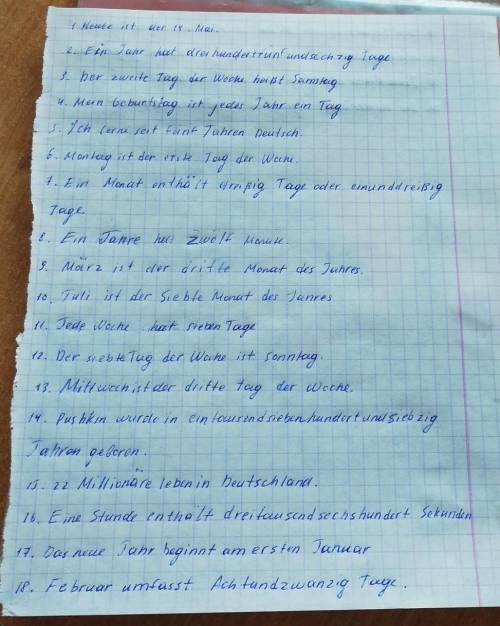 1. Heute ist der 14. Mai.
2. Ein Jahr hat dreihundertfünfundsechzig Tage
3. Der zweite Tag der Woche heißt Samstag
4. Mein Geburtstag ist jedes Jahr ein Tag
5. Ich lerne seit fünf Jahren Deutsch.
6. Montag ist der erste Tag der Woche.
7. Ein Monat enthält dreißig Tage oder einunddreißig
Tage.
8. Ein Jahre hat zwölf Monate.
9. März ist der dritte Monat des Jahres.
10. Juli ist der siebte Monat des Jahres
11. Jede Woche hat sieben Tage
12. Der siebte Tag der Woche ist sonntag.
13. Mittwoch ist der dritte tag der Woche.
14. Pushkin wurde in eintausendsiebenhundertundsiebzig
Jahren geboren.
15. 22 Millionäre leben in Deutschland.
16. Eine Stunde enthält dreitausendsechshundert Sekunden
17. Das neue Jahr beginnt am ersten Januar
18. Februar umfasst Achtundzwanzig Tage.